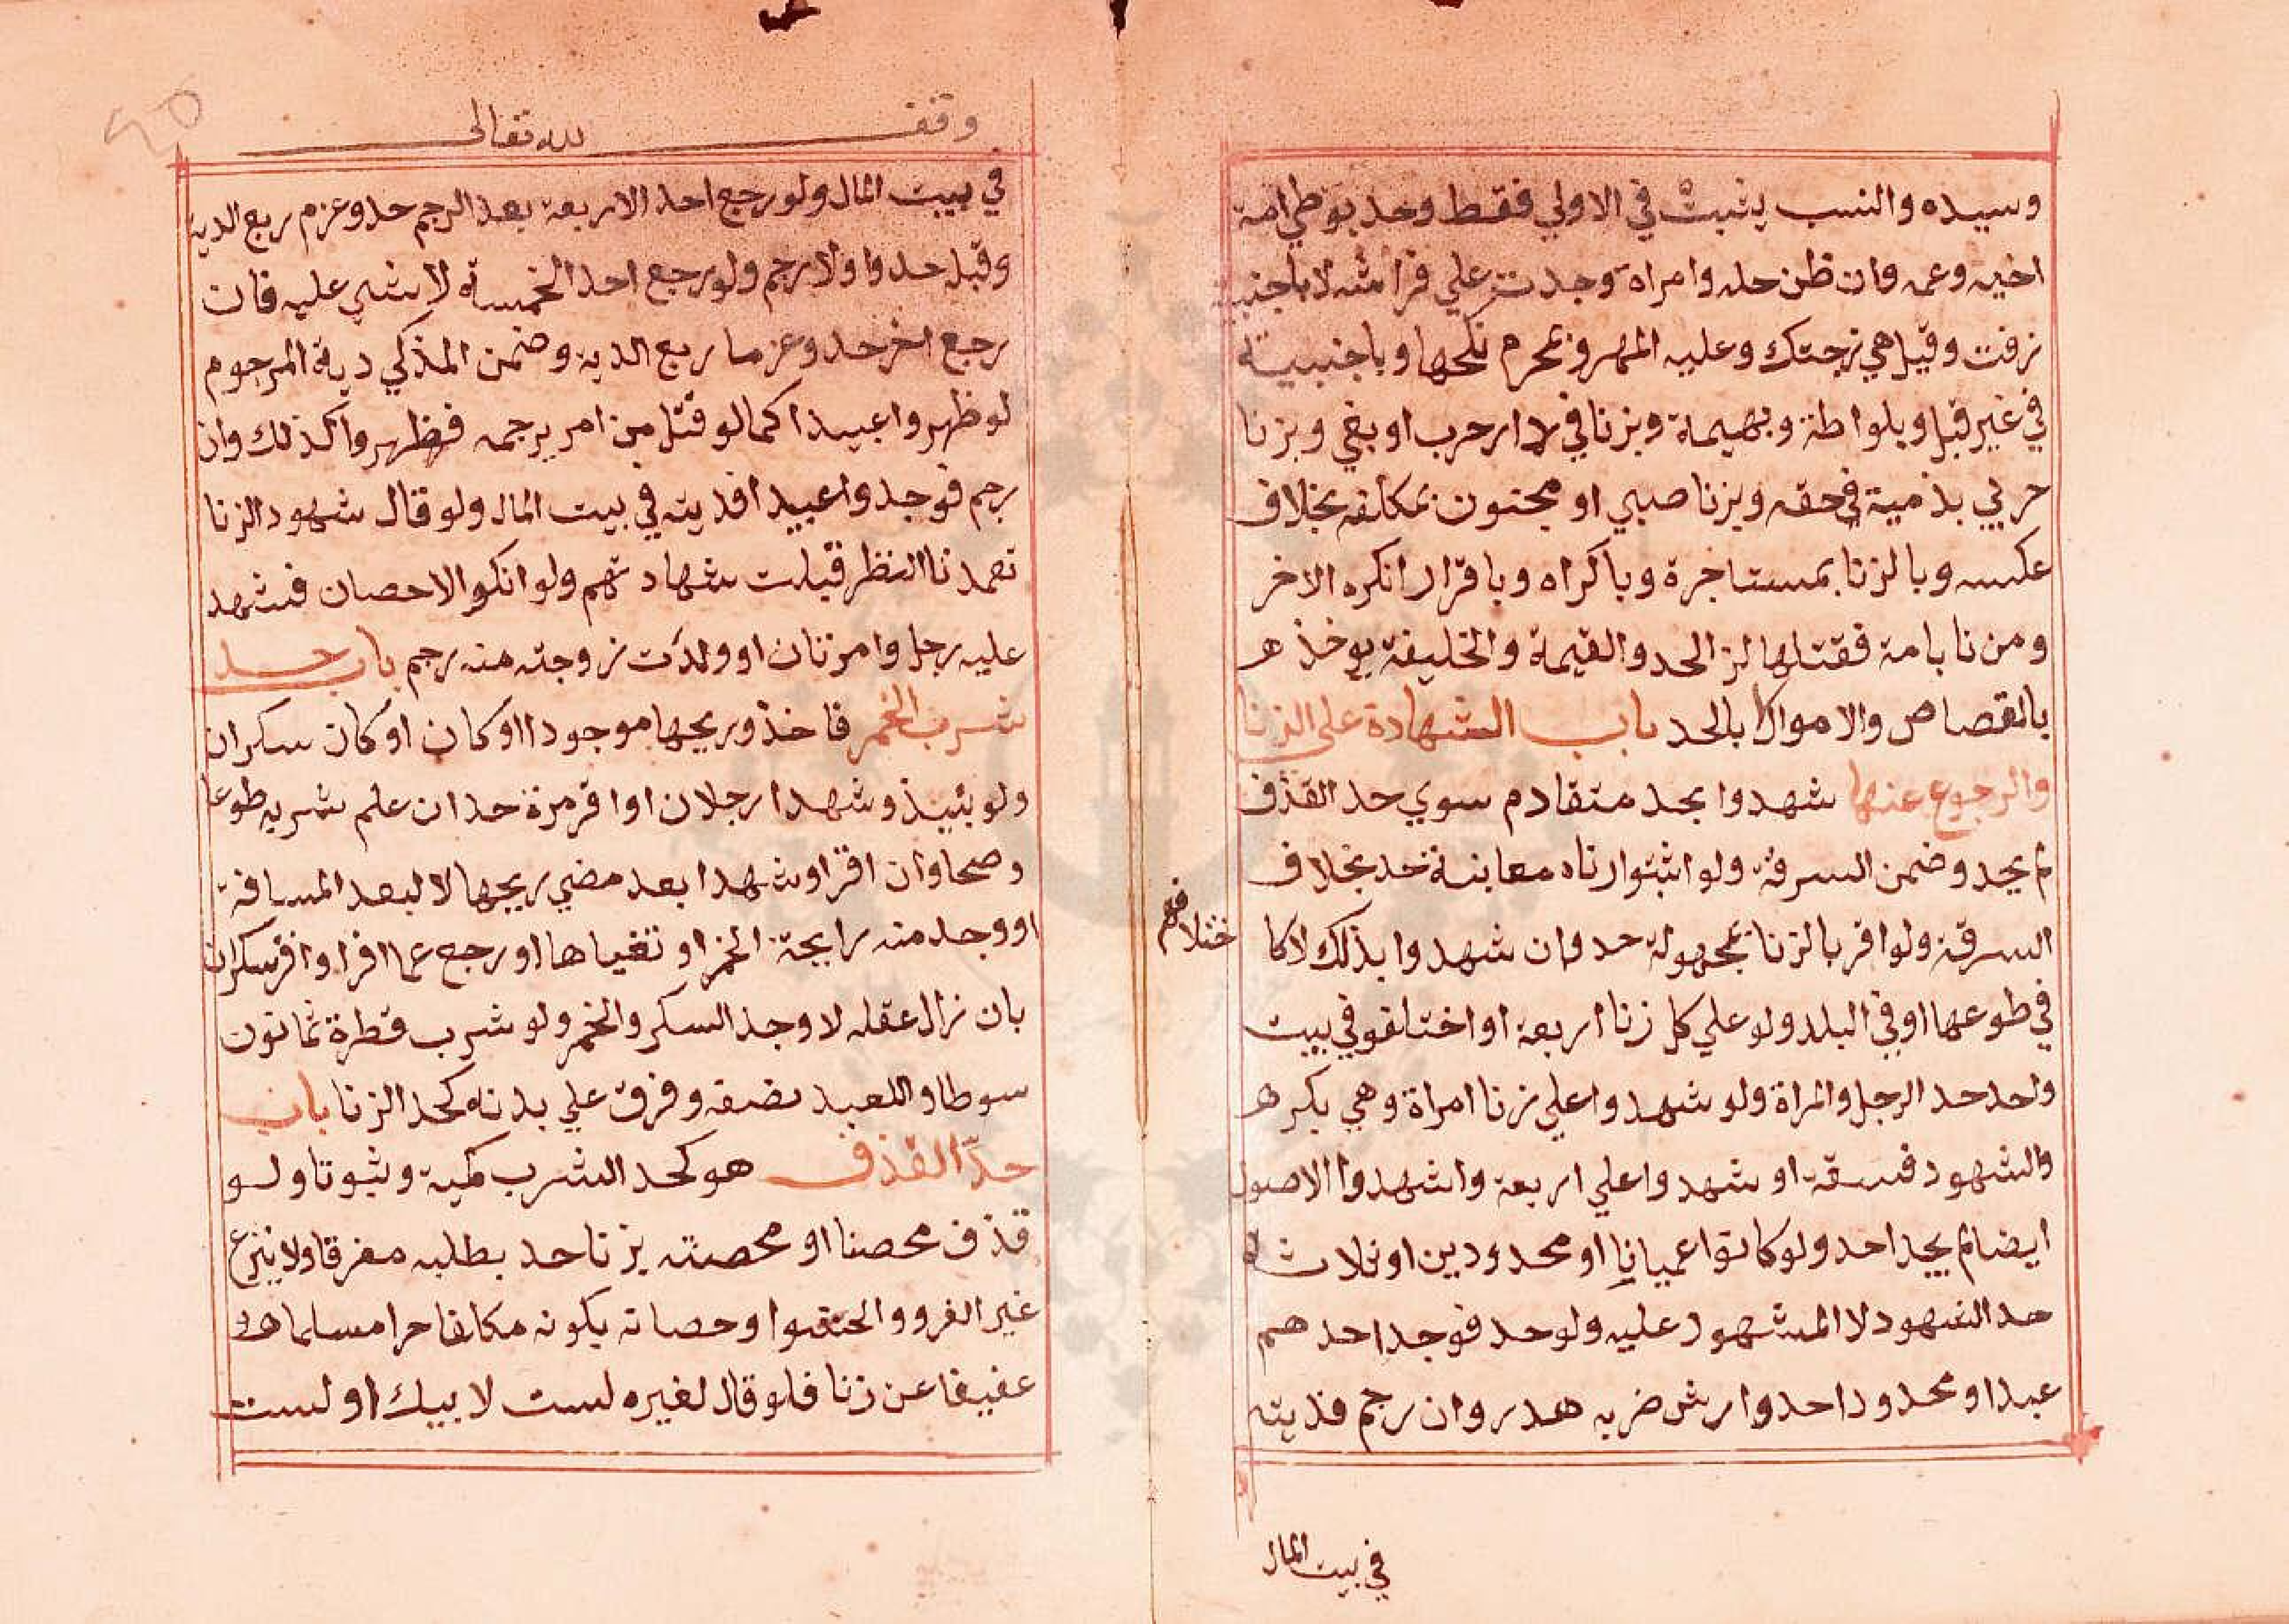 وسيده والنسب يثبت في الاولي فقط وحد بوطي امة
اخيه وعمه وان ظن حله وامراه وجدت علي فراشه لا باجنبية
زفت وقيل هي زجتك وعليه المهر وبمحرم نكحها وباجنبية
في غير قبل وبلواطة وبهيمة وبزنا في دار حرب او بغي وبزنا
حربي بذمية في حقه وبزنا صبي او مجنون بمكلفه بخلاف
عكسه وبالزنا بمستاجرة وباكراه وباقرار ان انكره الاخر
ومن زنا بامة فقتلها لزم الحد والقيمة والخليفة يوخذ
بالقصاص والاموال لا بالحد باب الشهادة علي الزنا
والرجوع عنها شهدوا بحد متقادم سوي حد القذف
لم يحد وضمن السرقة ولو اثبتوا زناه معاينة حد بخلاف
السرقة ولو اقر بالزنا بمجهولة حد وان شهدوا بذلك لا كا
ختلافهم
في طوعها او في البلد ولو علي كل زنا اربعة او اختلفو في بيت
واحد حد الرجل والمراة ولو شهدوا علي زنا امراة وهي بكر
والشهود فسقة او شهدوا علي اربعة واشهدوا الاصول
ايضا لم يحد احد ولو كانوا عميانا او محدودين او ثلاثة
حد الشهود لا المشهود عليه ولو حد فوجد احدهم
عبدا او محدودا حدوا وارش ضربه هدر وان رجم فديته
في بيت المال
وقف لله تعالى
في بييت المال ولو رجع احد الاربعة بعد الرجم حد وغرم ربع الدية
وقبله حدوا ولا رجم ولو رجع احد الخمسة لا شي عليه فان
رجع اخر حد وغرما ربع الدية وضمن المذكي دية المرجوم
لو ظهروا عبيدا كما لو قتل من امر برجمه فظهروا كذلك وان
رجم فوجدوا عبيدا فديته في بيت المال ولو قال شهود الزنا
تعمدنا النظر قبلت شهادتهم ولو انكر الاحصان فشهد
عليه رجل وامرتان او ولدت زوجته منه رجم باب حد
شرب الخمر فاخذ وريحها موجودا او كان او كان سكران
ولو بنبيذ وشهدا رجلان او اقر مرة حد ان علم شربه طوعا
وصحا وان اقر او شهدا بعد مضي ريحها لا لبعد المسافة
او وجد منه رايحة الخمر او تقياها او رجع عما اقر او اقر سكران
بان زال عقله لا وحد السكر والخمر ولو شرب قطرة ثمانون
سوطا وللعبد نصفه وفرق علي بدنه كحد الزنا باب
حد القذف هو كحد الشرب كمية وثبوتا ولو
قذف محصنا او محصنة بزنا حد بطلبه مفرقا ولا ينزع
غير الفرو والحشو واحصانه بكونه مكلفا حرا مسلما
عفيفا عن زنا فلو قال لغيره لست لابيك او لست